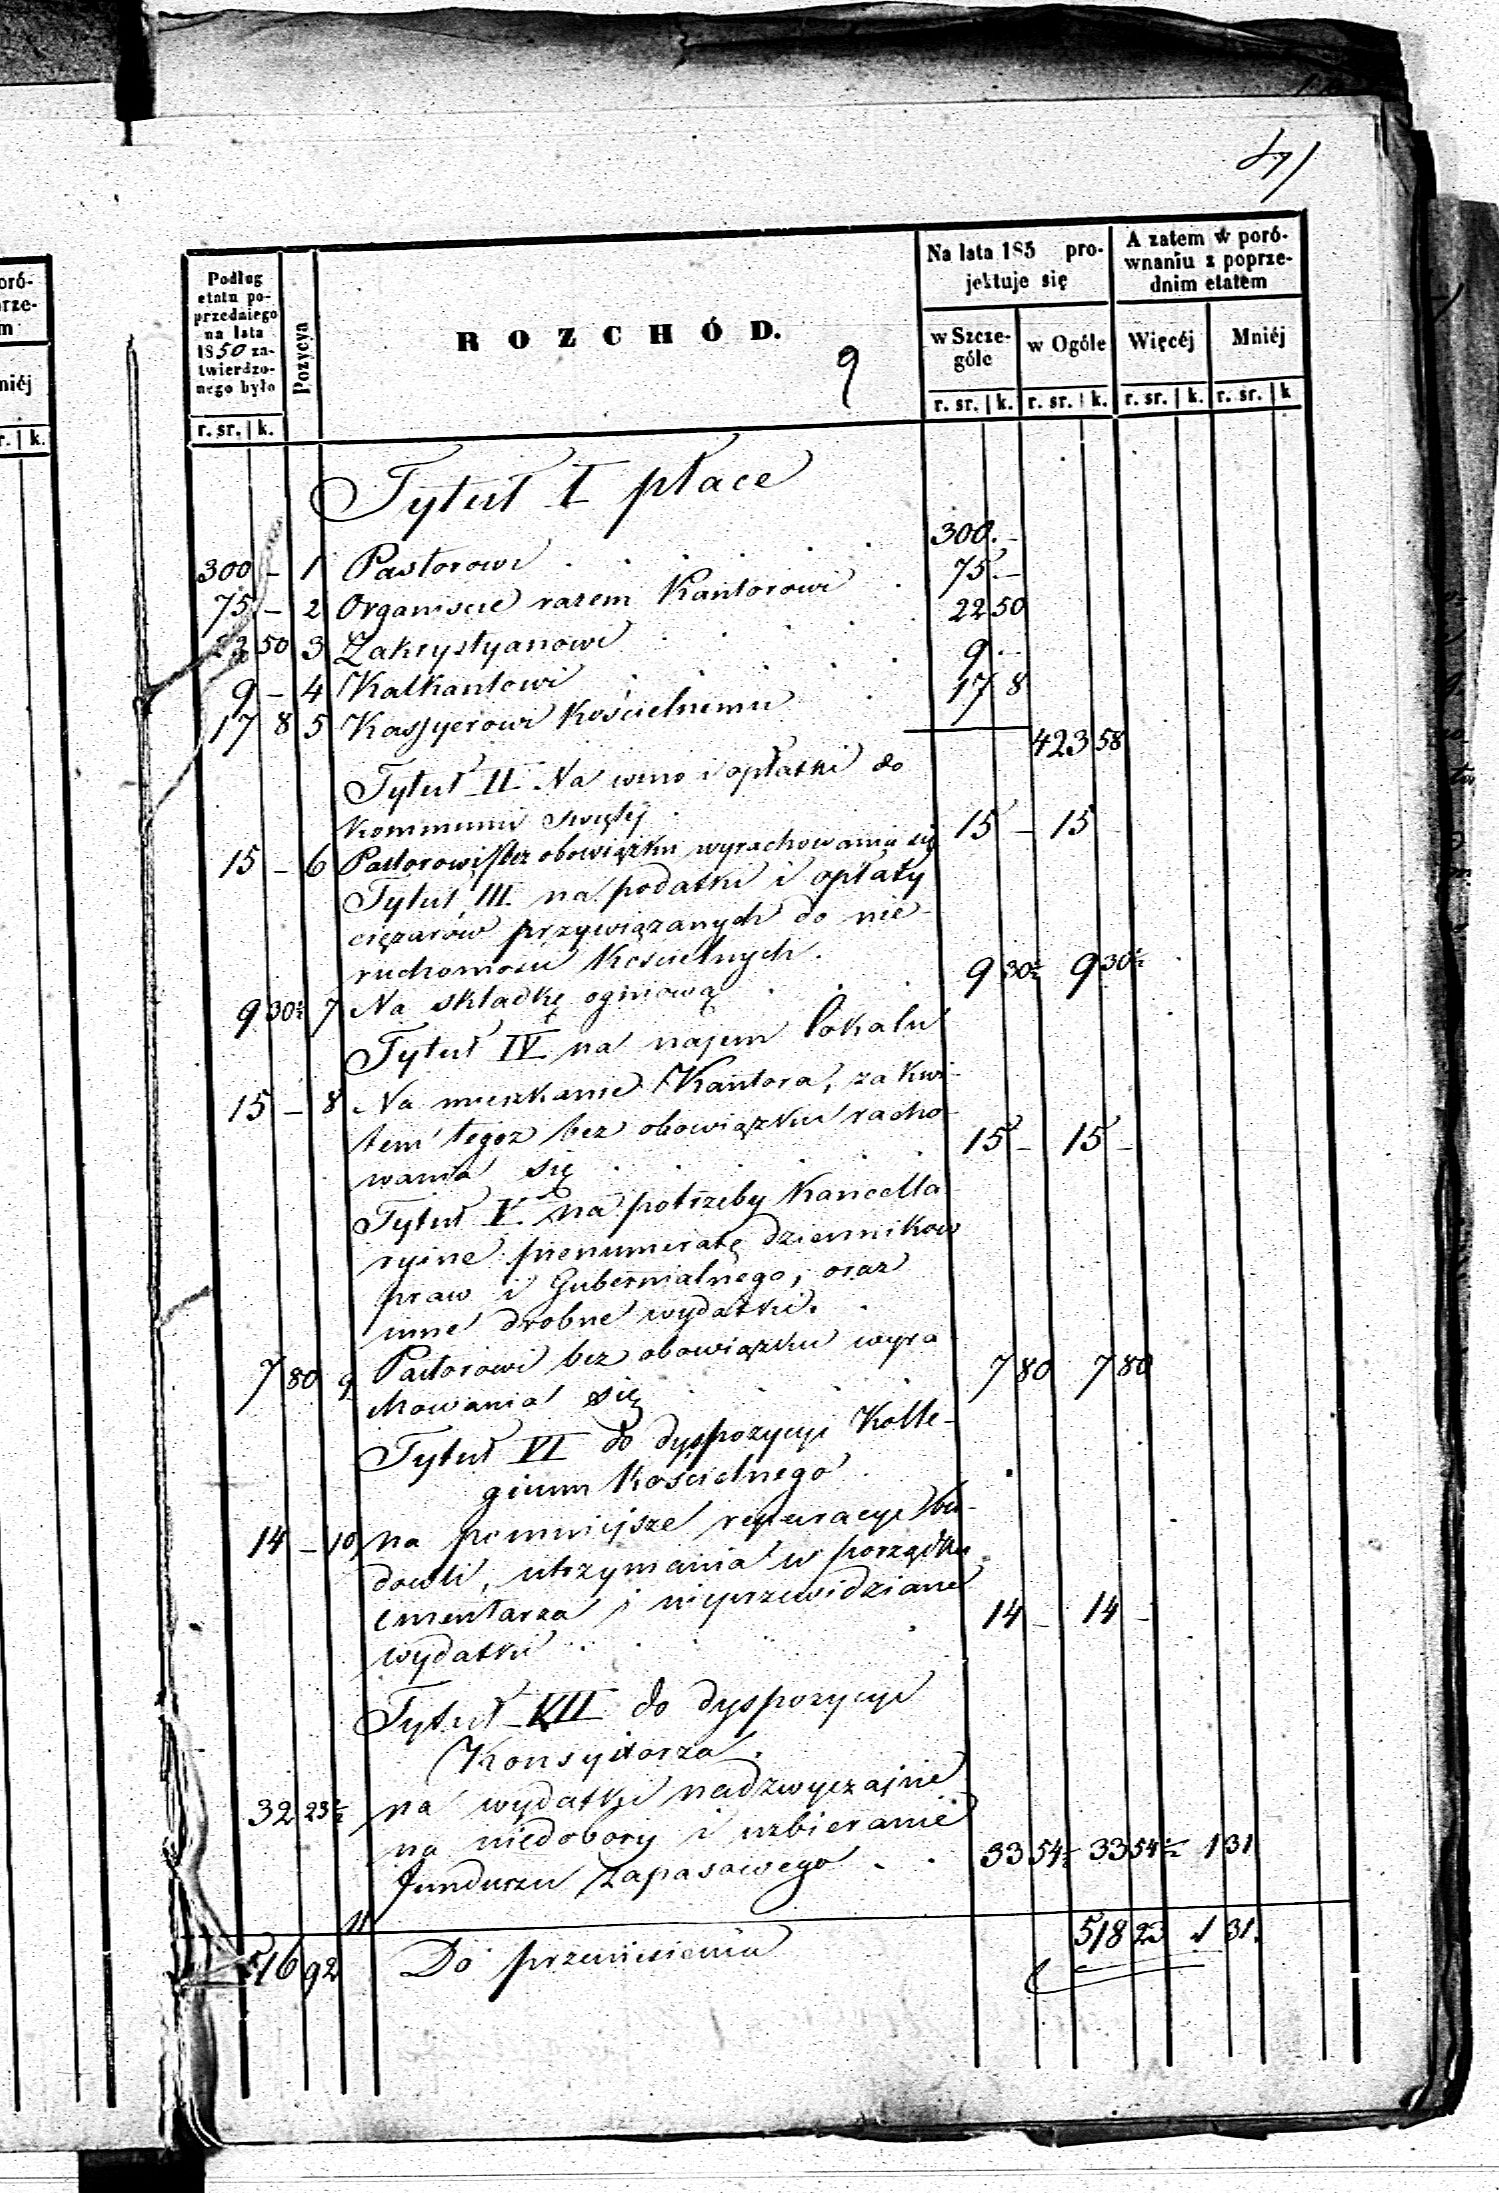 47
Podług etatu poprzedniego na lata 1850 zatwierdzonego było
Pozycya
ROZCHÓD.
Na lata 185 projektuje się
A zatem w porównaniu z poprzednim etatem
w Szczególe
w Ogóle
Więcéj
Mniéj
r. sr. | k.
r. sr. | k. r. sr. | k. r. sr. | k. r. sr. | k
9
Tytuł I płace
300 – 1 Pastorowi . . . . 300. –
75 – 2 Organiscie razem Kantorowi . 75. –
22 50 3 Zakrystyanowi . . . . 22 50
9 – 4 Kalkantowi . . . . 9 . –
17 8 5 Kassyerowi Kościelnemu . 17 8
423 58
Tytuł II Na wino i opłatki do
Kommunii Swiętéj .
15 – 6 Pastorowi bez obowiązku wyrachowania się 15 – 15 –
Tytuł III na podatki i opłaty
ciężarów przywiązanych do nie-
ruchomości Kościelnych.
9 30½ 7 Na składkę ogniową . . . 9 30½ 9 30½
Tytuł IV na najem lokalu
15 – 8 Na mieszkanie Kantora, za kwi-
tem tegoż bez obowiązku racho-
wania się . . . . 15 – 15 –
Tytuł V na potrzeby Kancella
ryine prenumeratę dziennikow
praw i Gubernialnego, oraz
inne drobne wydatki. .
7 80 9 Pastorowi bez obowiązku wyra
chowania się . . . . 7 80 7 80
Tytuł VI do dyspozycyi Kolle-
gium Kościelnego .
14 – 10 na pomniejsze reparacye bu-
dowli, utrzymania w porządku
cmentarza i nieprzewidziane
wydatki . . . . 14 – 14 –
Tytuł VII do dyspozycyi
Konsystorza .
32 23½ na wydatki nadzwyczajne
na niedobory i uzbieranie
funduszu Zapasowego . . 33 54½ 33 54½ 1 31
11
516 92 Do przeniesienia 518 23 1 31.